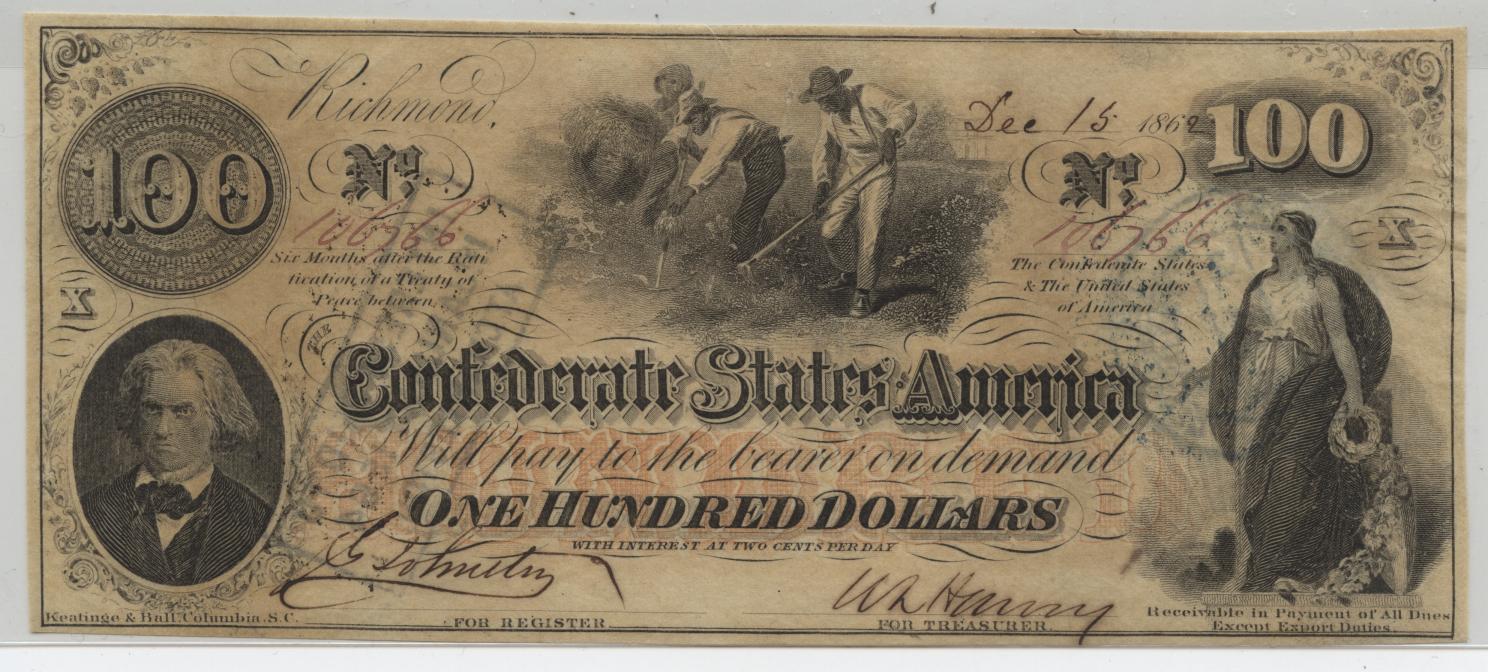 Richmond,
Dec 15 1862
100
100
No.
No.
106766
106766
Six Months after the Rati
fication of a Treaty of
Peace between
The Confederate States
& The United States
of America
X
X
THE
Confederate States America
Will pay to the bearer on demand
ONE HUNDRED DOLLARS
WITH INTEREST AT TWO CENTS PER DAY
Keatinge & Ball, Columbia, S.C.
FOR REGISTER
FOR TREASURER.
Receivable in Payment of All Dues
Except Export Duties.